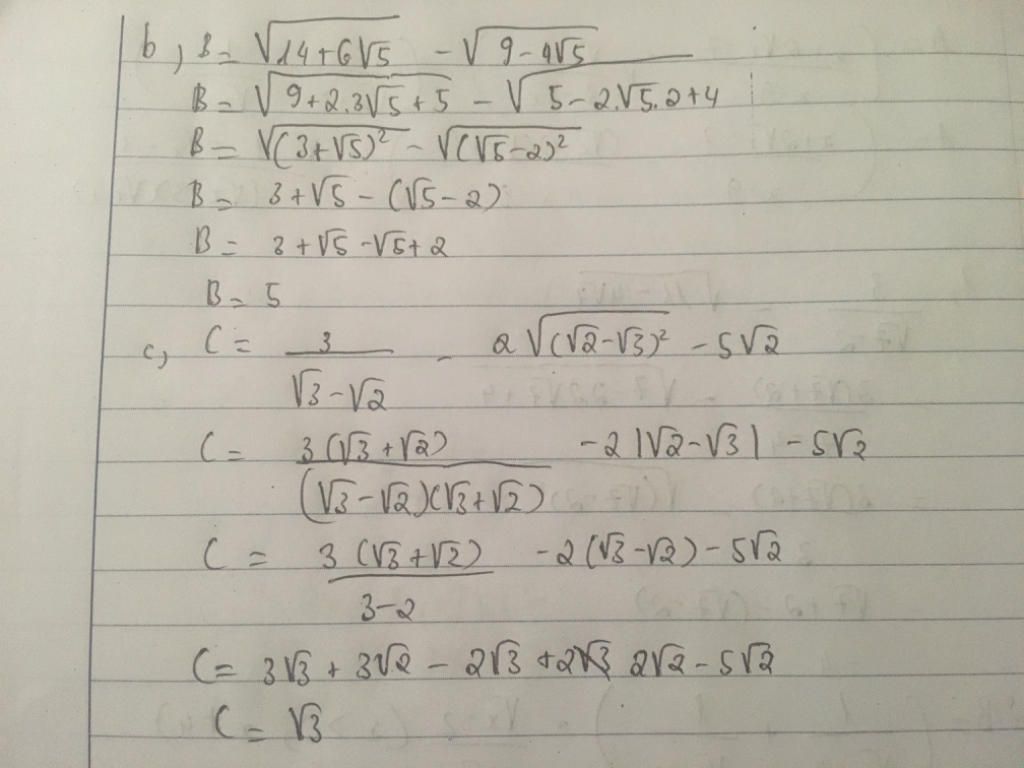 b, B = √(14+6√5) - √(9-4√5)
B = √(9+2.3√5+5) - √(5-2.√5.2+4)
B = √((3+√5)²) - √((√5-2)²)
B = 3+√5 - (√5-2)
B = 3+√5-√5+2
B = 5
c, C = 3/(√3-√2) - 2√((√2-√3)²) - 5√2
C = 3(√3+√2)/((√3-√2)(√3+√2)) - 2|√2-√3| - 5√2
C = 3(√3+√2)/(3-2) - 2(√3-√2) - 5√2
C = 3√3 + 3√2 - 2√3 + 2√2 - 5√2
C = √3